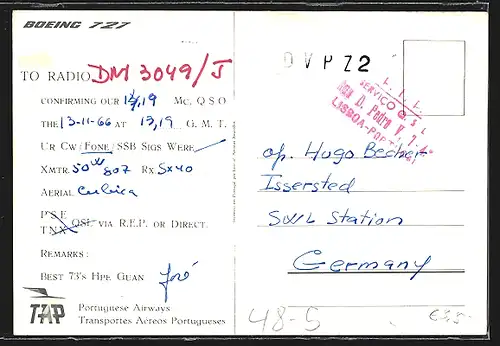 BOEING 727
TO RADIO DM 3049/J
CONFIRMING OUR 13,19 MC. QSO
THE 13-11-66 AT 13,19 G. M. T.
UR CW/FONE/SSB SIGS WERE
XMTR 50W 807 RX SX40
AERIAL Cubica
PSE
TNX QSL VIA R.E.P. OR DIRECT.
REMARKS:
BEST 73'S HPE GUAN José
TAP Portuguese Airways
Transportes Aéreos Portugueses
DVPZ2
SERVIÇO Q S L
Rua D. Pedro V, 7-4
LISBOA-PORTUGAL
op. Hugo Becher
Issersted
SWL Station
Germany
48-5